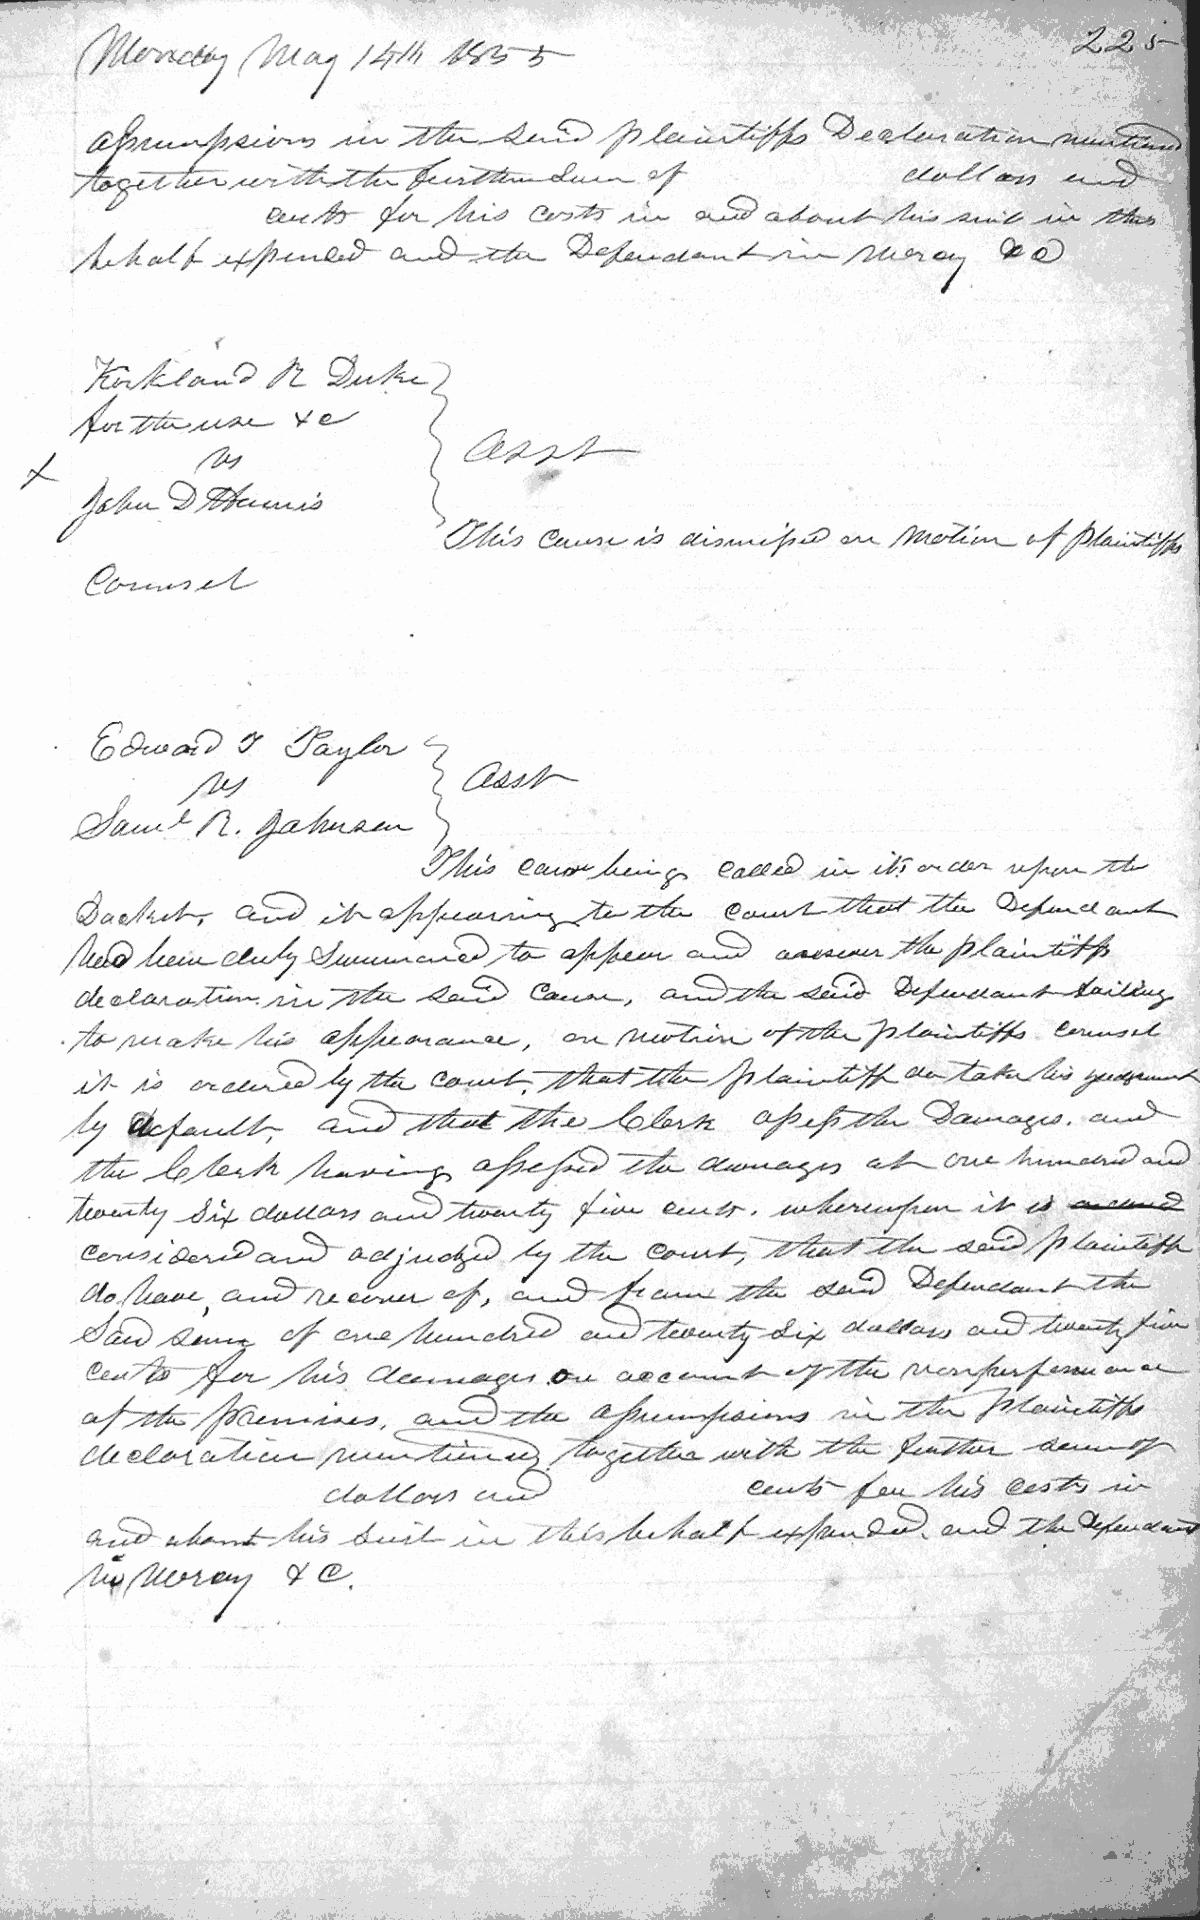 Monday May 14th 1855
225
assumpsions in the said plaintiffs Declaration mentiond
together with the further Sum of dollars and
cents for his costs in and about his suit in this
behalf expended and the Defendant in mercy &c
Kirkland R Duke
for the use &c
vs
Asst
x
John D Harris
This cause is dismissed on motion of plaintiffs
Counsel
Edward T Taylor
vs
Asst
Saml R. Johnson
This cause being called in its order upon the
Docket, and it appearing to the court that the Defendant
had been duly Summoned to appear and answer the plaintiffs
declaration in the said Cause, and the said Defendant failing
to make his appearance, on motion of the plaintiffs counsel
it is ordered by the court, that the plaintiff do take his judgment
by default, and that the Clerk assess the Damages. and
the Clerk having assessed the damages at one hundred and
twenty Six dollars and twenty five cents. whereupon it is
considered and adjudged by the court, that the said plaintiff
do have, and recover of, and from the said Defendant the
Said sum of one hundred and twenty Six dollars and twenty five
cents for his damages on account of the nonperformance
of the premises, and the assumpsions in the plaintiffs
declaration mentioned, together with the further sum of
dollars and cents for his costs in
and about his Suit in this behalf expended. and the Defendant
in Mercy &C.